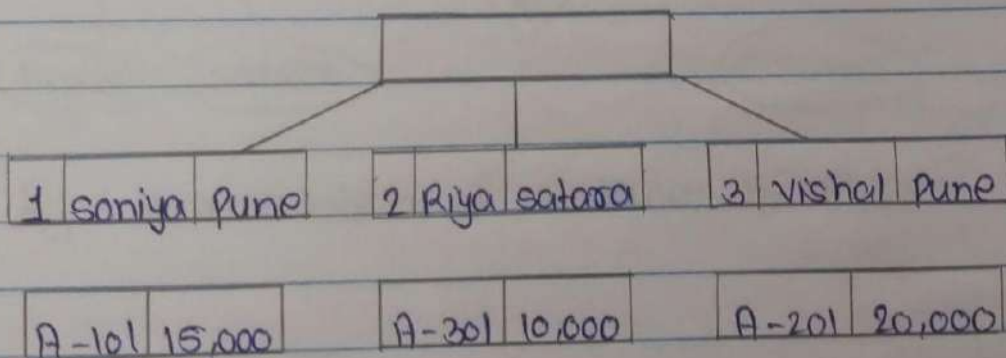 1 soniya pune 2 Riya satara 3 vishal pune
A-101 15,000 A-301 10,000 A-201 20,000